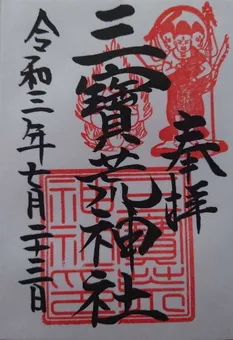 奉拝
三寳荒神社
令和三年七月二十三日